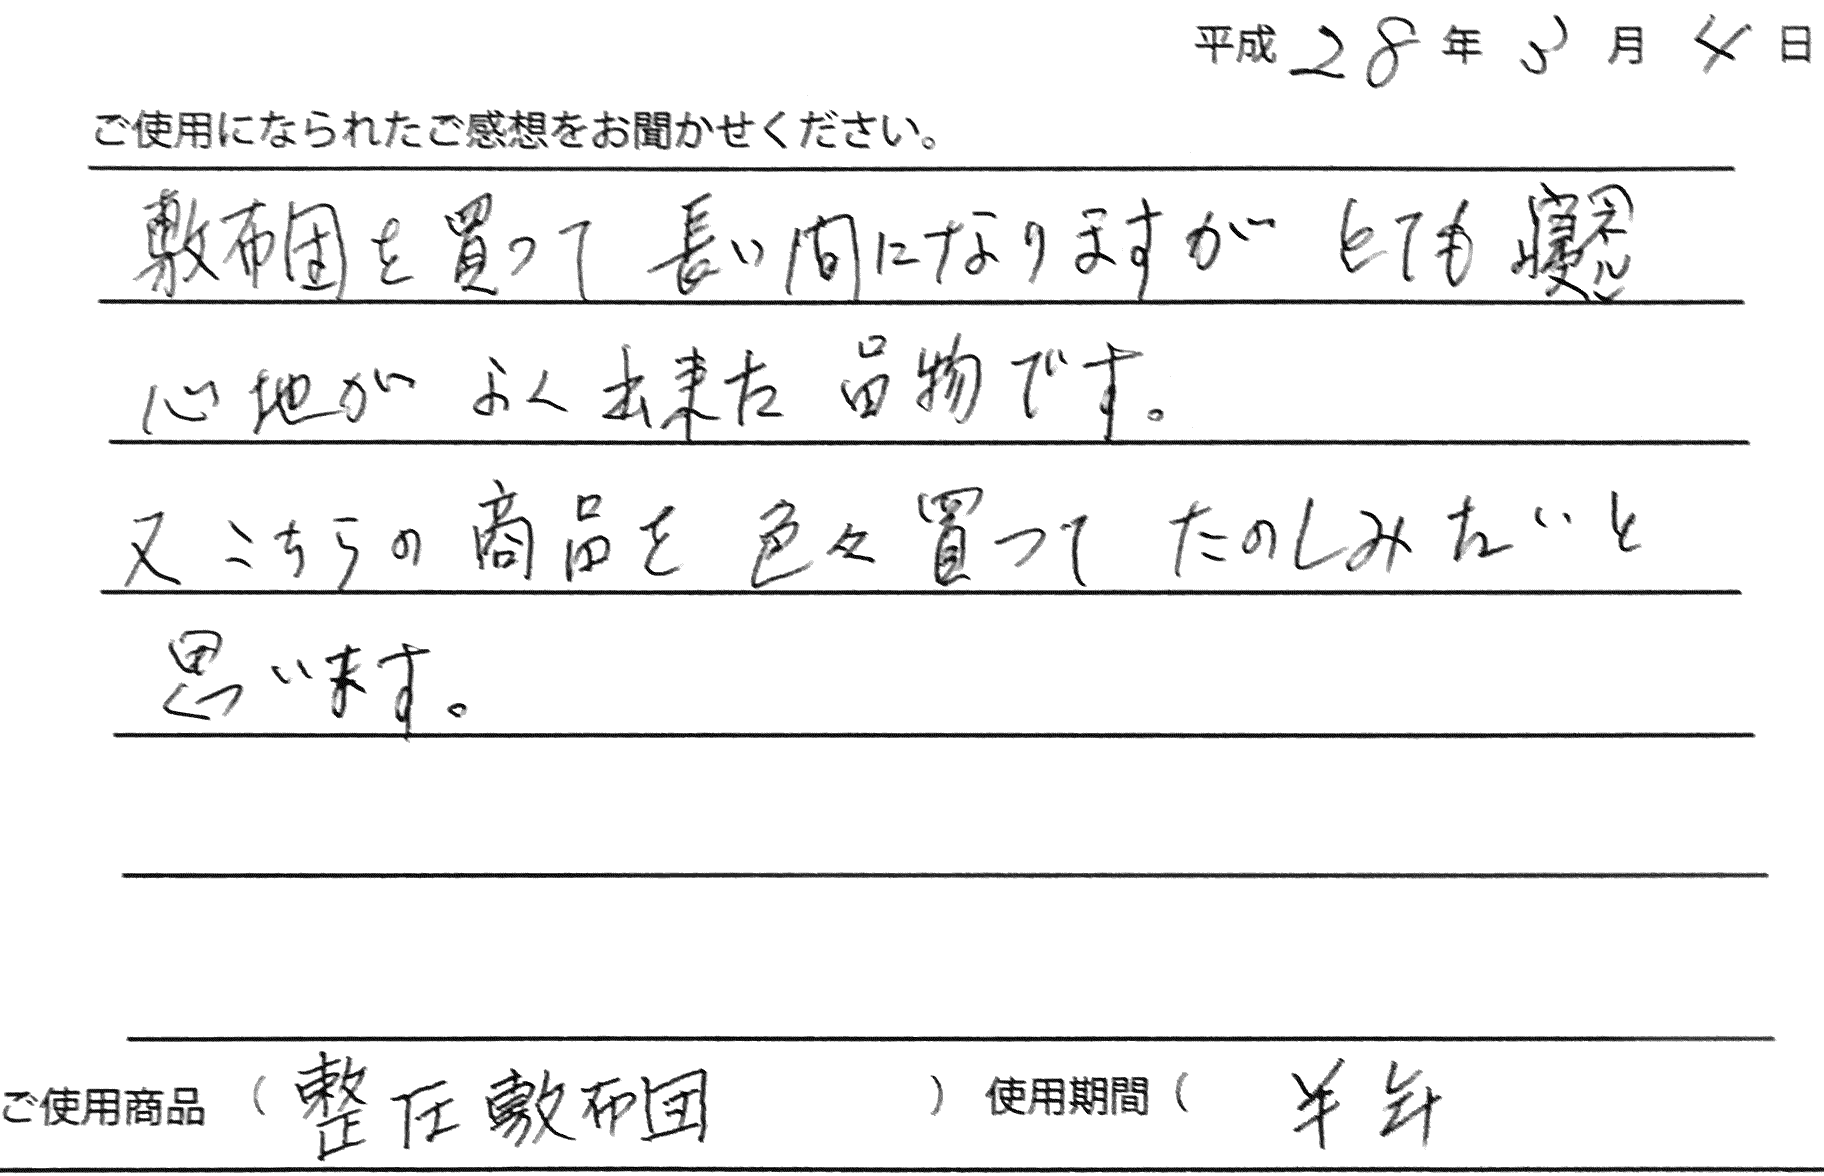 平成28年3月4日
ご使用になられたご感想をお聞かせください。
敷布団を買って長い間になりますがとても寝
心地がよく出来た品物です。
又こちらの商品を色々買ってたのしみたいと
思います。
ご使用商品（整圧敷布団）使用期間（半年